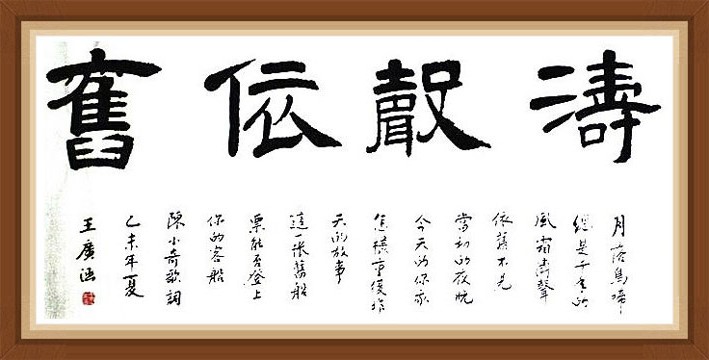 濤聲依舊
月落烏啼
總是千年的
風霜濤聲
依舊不見
當初的夜晚
今天的你我
怎樣重復昨
天的故事
這一張舊船
票能否登上
你的客船
陳小奇歌詞
乙未年夏
王廣